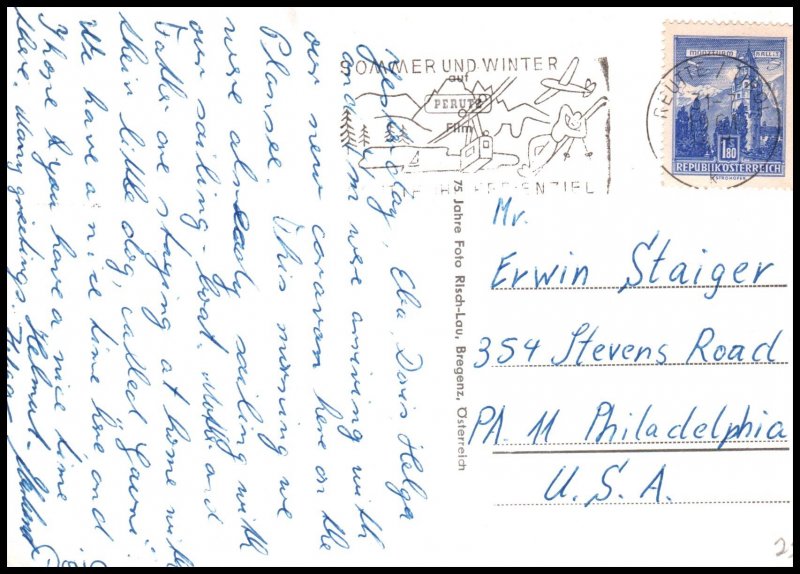 Yesterday, Eba, Doris, Helga
and I'm were arriving with
our new caravan here on the
Plansee. This morning we
were already sailing with
our sailing-boat. Mother and
Father are staying at home with
their little dog, called
We have a nice time here and
I hope you have a nice time
there. Many greetings. Helmut
SOMMER UND WINTER
auf
PERUTZ
Film
REUTTE
MÜNZTURM HALL i. T.
1.80
REPUBLIK ÖSTERREICH
75 Jahre Foto Risch-Lau, Bregenz, Österreich
Mr.
Erwin Staiger
354 Stevens Road
PA. 11 Philadelphia
U. S. A.